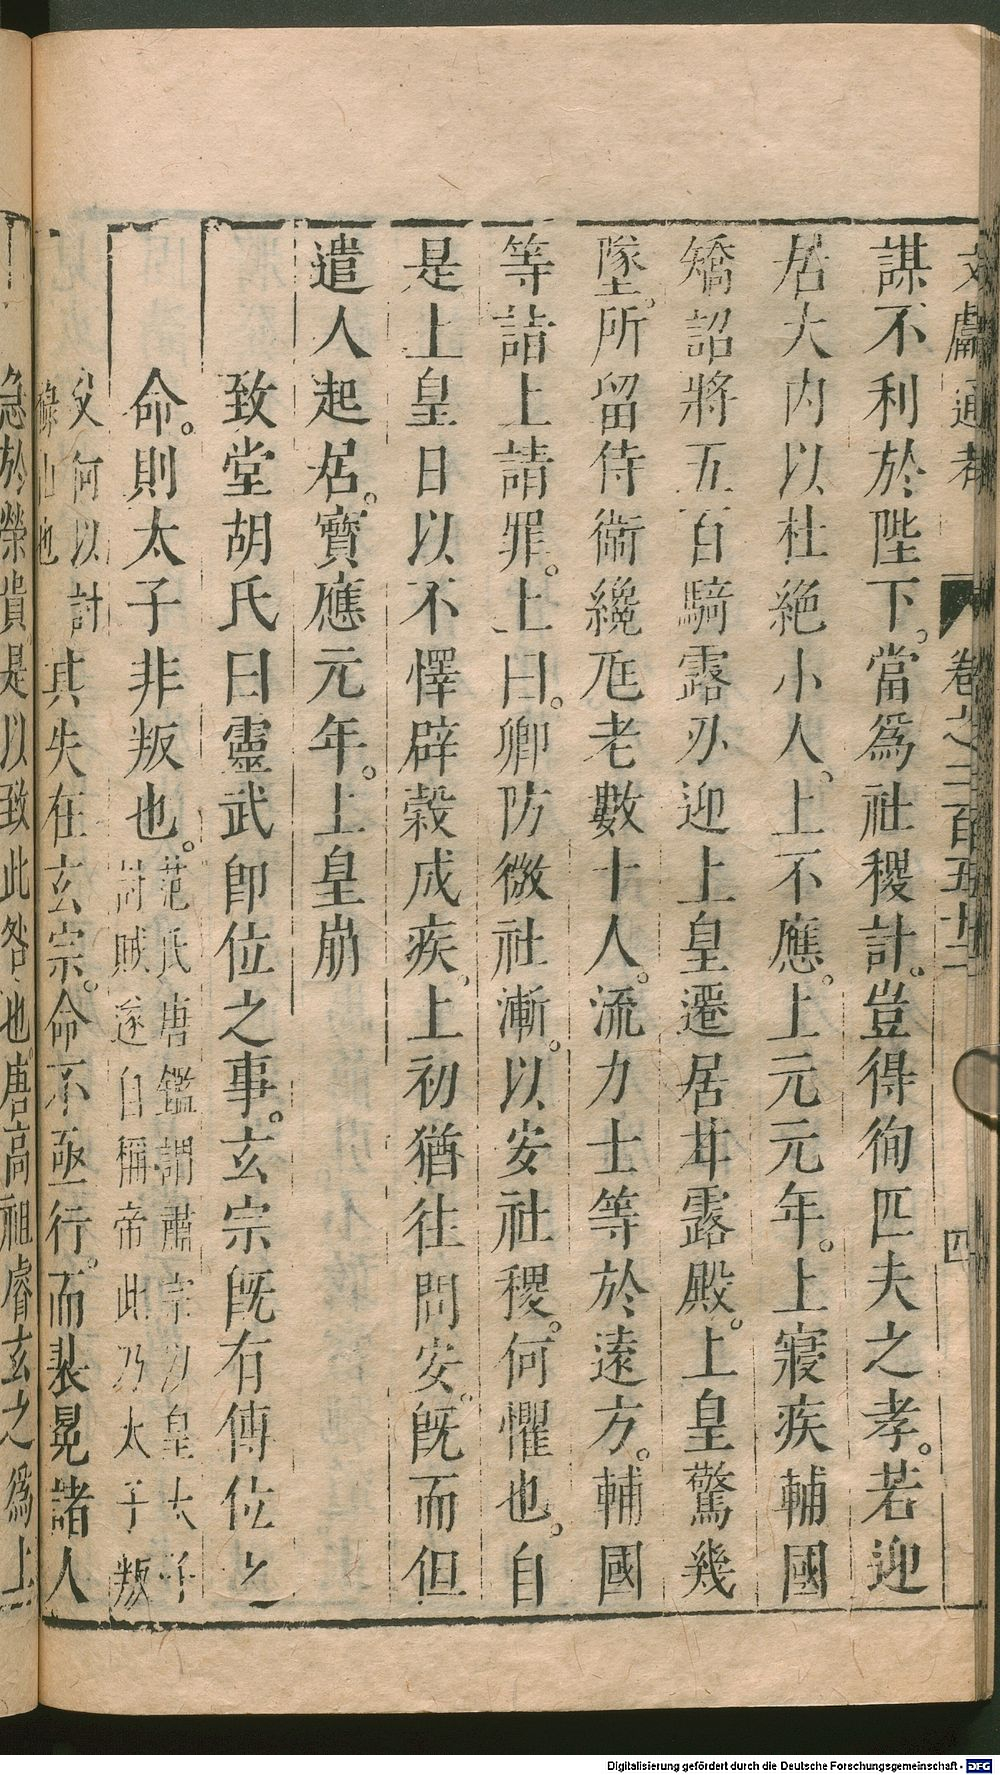 文獻通考 卷之二百五十二 四
謀不利於陛下。當爲社稷計。豈得徇匹夫之孝。若迎
居大內以杜絕小人。上不應。上元元年。上寢疾輔國
矯詔將五百騎露刃迎上皇遷居甘露殿。上皇驚幾
墜。所留侍衛纔尫老數十人。流力士等於遠方。輔國
等詣上請罪。上曰。卿防微社漸。以安社稷。何懼也。自
是上皇日以不懌辟穀成疾。上初猶往問安。旣而但
遣人起居。寶應元年。上皇崩
致堂胡氏曰靈武卽位之事。玄宗旣有傳位之
命。則太子非叛也。范氏唐鑑謂肅宗以皇太子
討賊遂自稱帝此乃太子叛
父何以討
祿山也 其失在玄宗。命不亟行。而裴冕諸人
急於榮貴。是以致此咎也。唐高祖睿玄之爲上
Digitalisierung gefördert durch die Deutsche Forschungsgemeinschaft - DFG